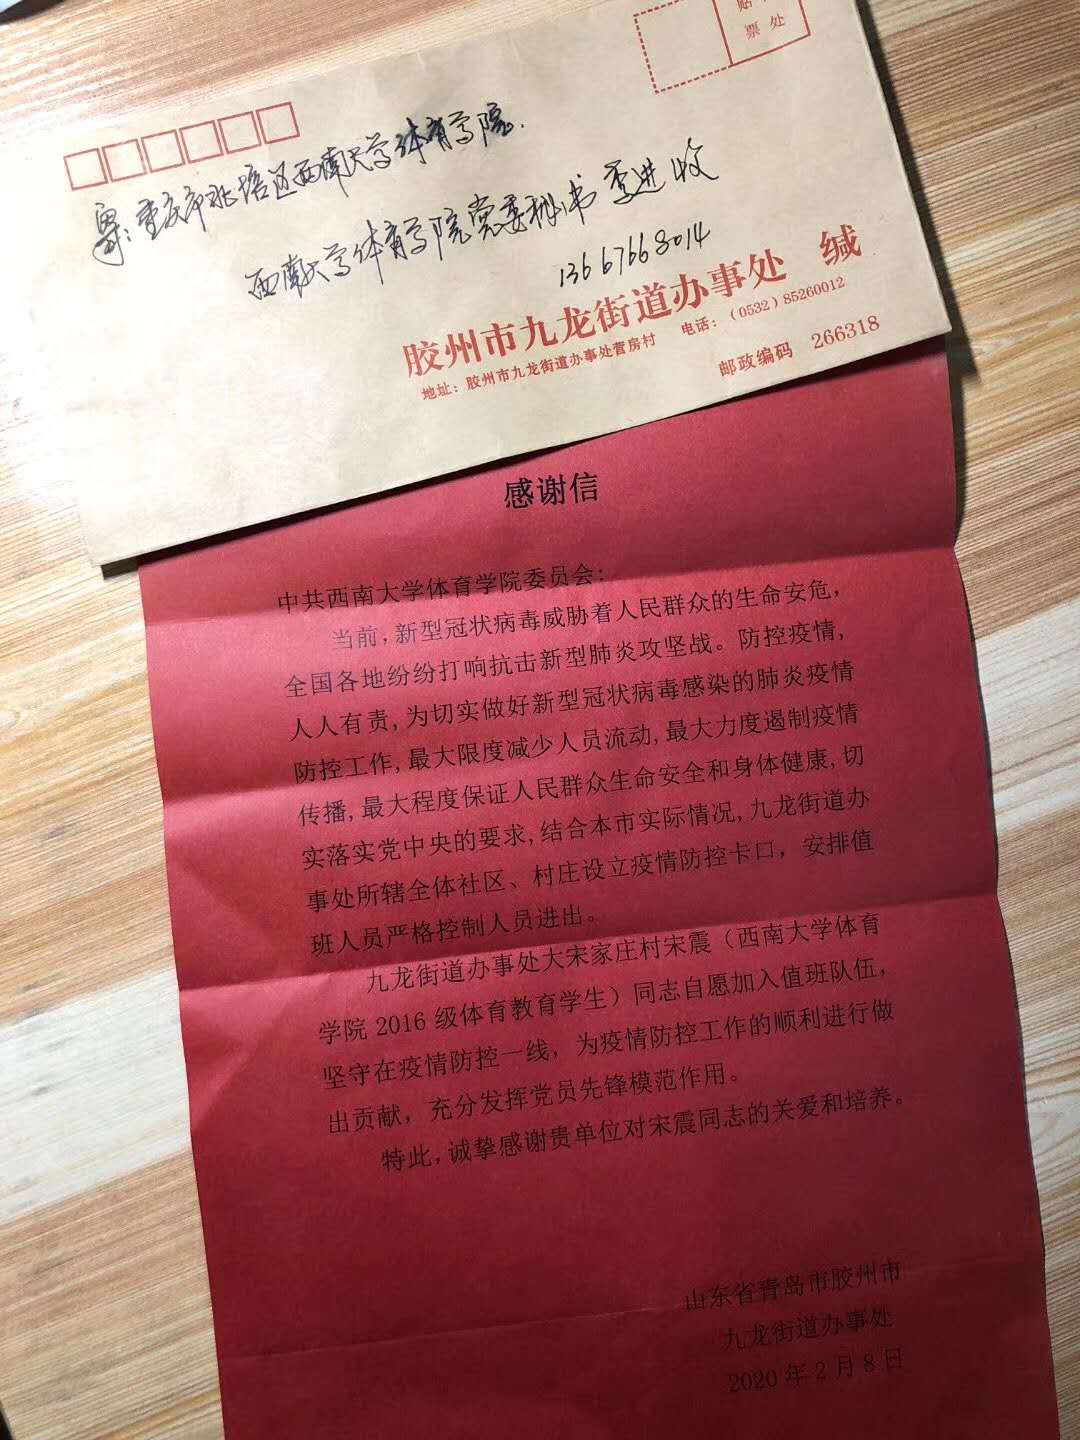 贴
票处
重庆市北培区西南大学体育学院.
西南大学体育学院党委秘书 李进 收
13667668014
胶州市九龙街道办事处 缄
地址：胶州市九龙街道办事处营房村 电话：（0532）85260012
邮政编码 266318
感谢信
中共西南大学体育学院委员会：
当前，新型冠状病毒威胁着人民群众的生命安危，
全国各地纷纷打响抗击新型肺炎攻坚战。防控疫情，
人人有责，为切实做好新型冠状病毒感染的肺炎疫情
防控工作，最大限度减少人员流动，最大力度遏制疫情
传播，最大程度保证人民群众生命安全和身体健康，切
实落实党中央的要求，结合本市实际情况，九龙街道办
事处所辖全体社区、村庄设立疫情防控卡口，安排值
班人员严格控制人员进出。
九龙街道办事处大宋家庄村宋震（西南大学体育
学院 2016 级体育教育学生）同志自愿加入值班队伍，
坚守在疫情防控一线，为疫情防控工作的顺利进行做
出贡献，充分发挥党员先锋模范作用。
特此，诚挚感谢贵单位对宋震同志的关爱和培养。
山东省青岛市胶州市
九龙街道办事处
2020 年 2 月 8 日